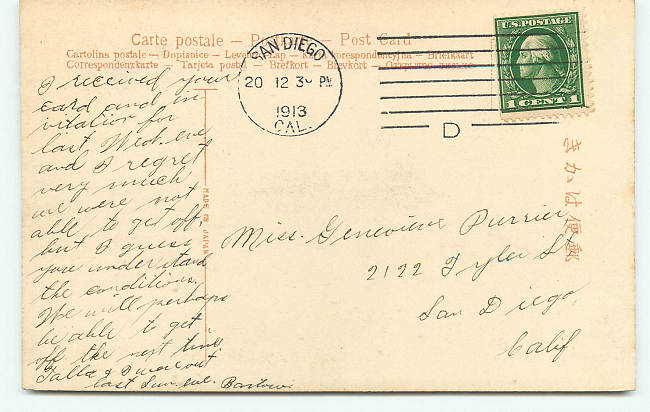 Carte postale — Post Card
Cartolina postale — Dopisnice — Levelezo-Lap — Korrespondentyjna — Briefkaart
Correspondenzkarte — Tarjeta postal — Brefkort — Brevkort —
SAN DIEGO
20 12 30 PM
1913
CAL.
D
U.S. POSTAGE
1 CENT 1
きかは便郵
MADE IN JAPAN
I received your
card and in
vitation for
last Wed. eve
and I regret
very much
we were not
able to get off,
but I guess
you understand
the conditions.
We will perhaps
be able to get
off the next time.
Talla & I were out
last Sun. eve. Barlow
Miss. Genevieve Purrier
2122 Tyler St
San Diego,
Calif